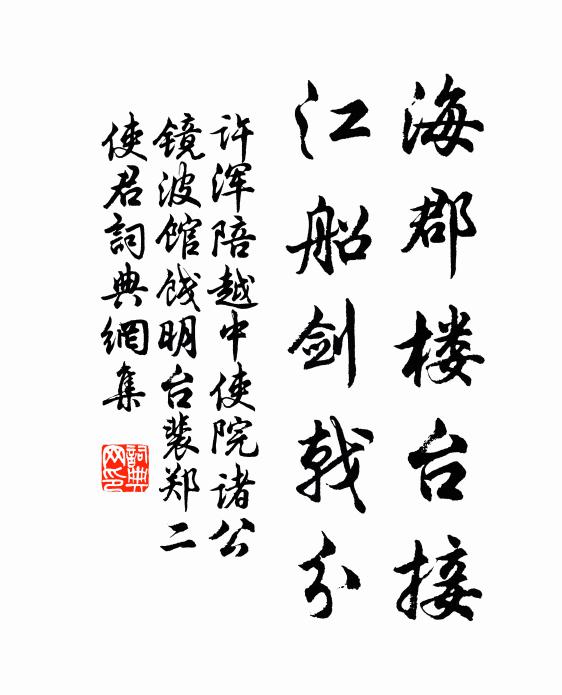 海郡楼台接
江船剑戟分
许浑陪越中使院诸公
镜波馆饯明台裴郑二
使君詞典網集
詞典
网印